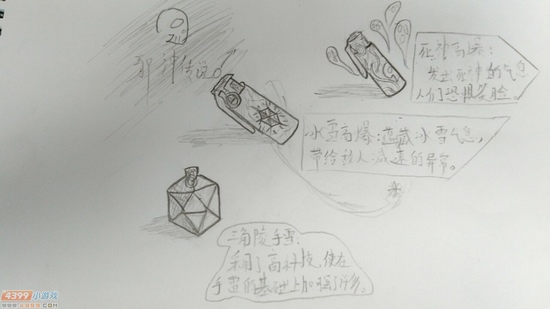 死神传说
死神高爆:
发出死神的气息
人们恐惧
冰雪高爆:蕴藏冰雪气息,
带给敌人减速的异常。
三角陵手雷:
采用了高科技,使在
手雷的基础上加强了
4399小游戏